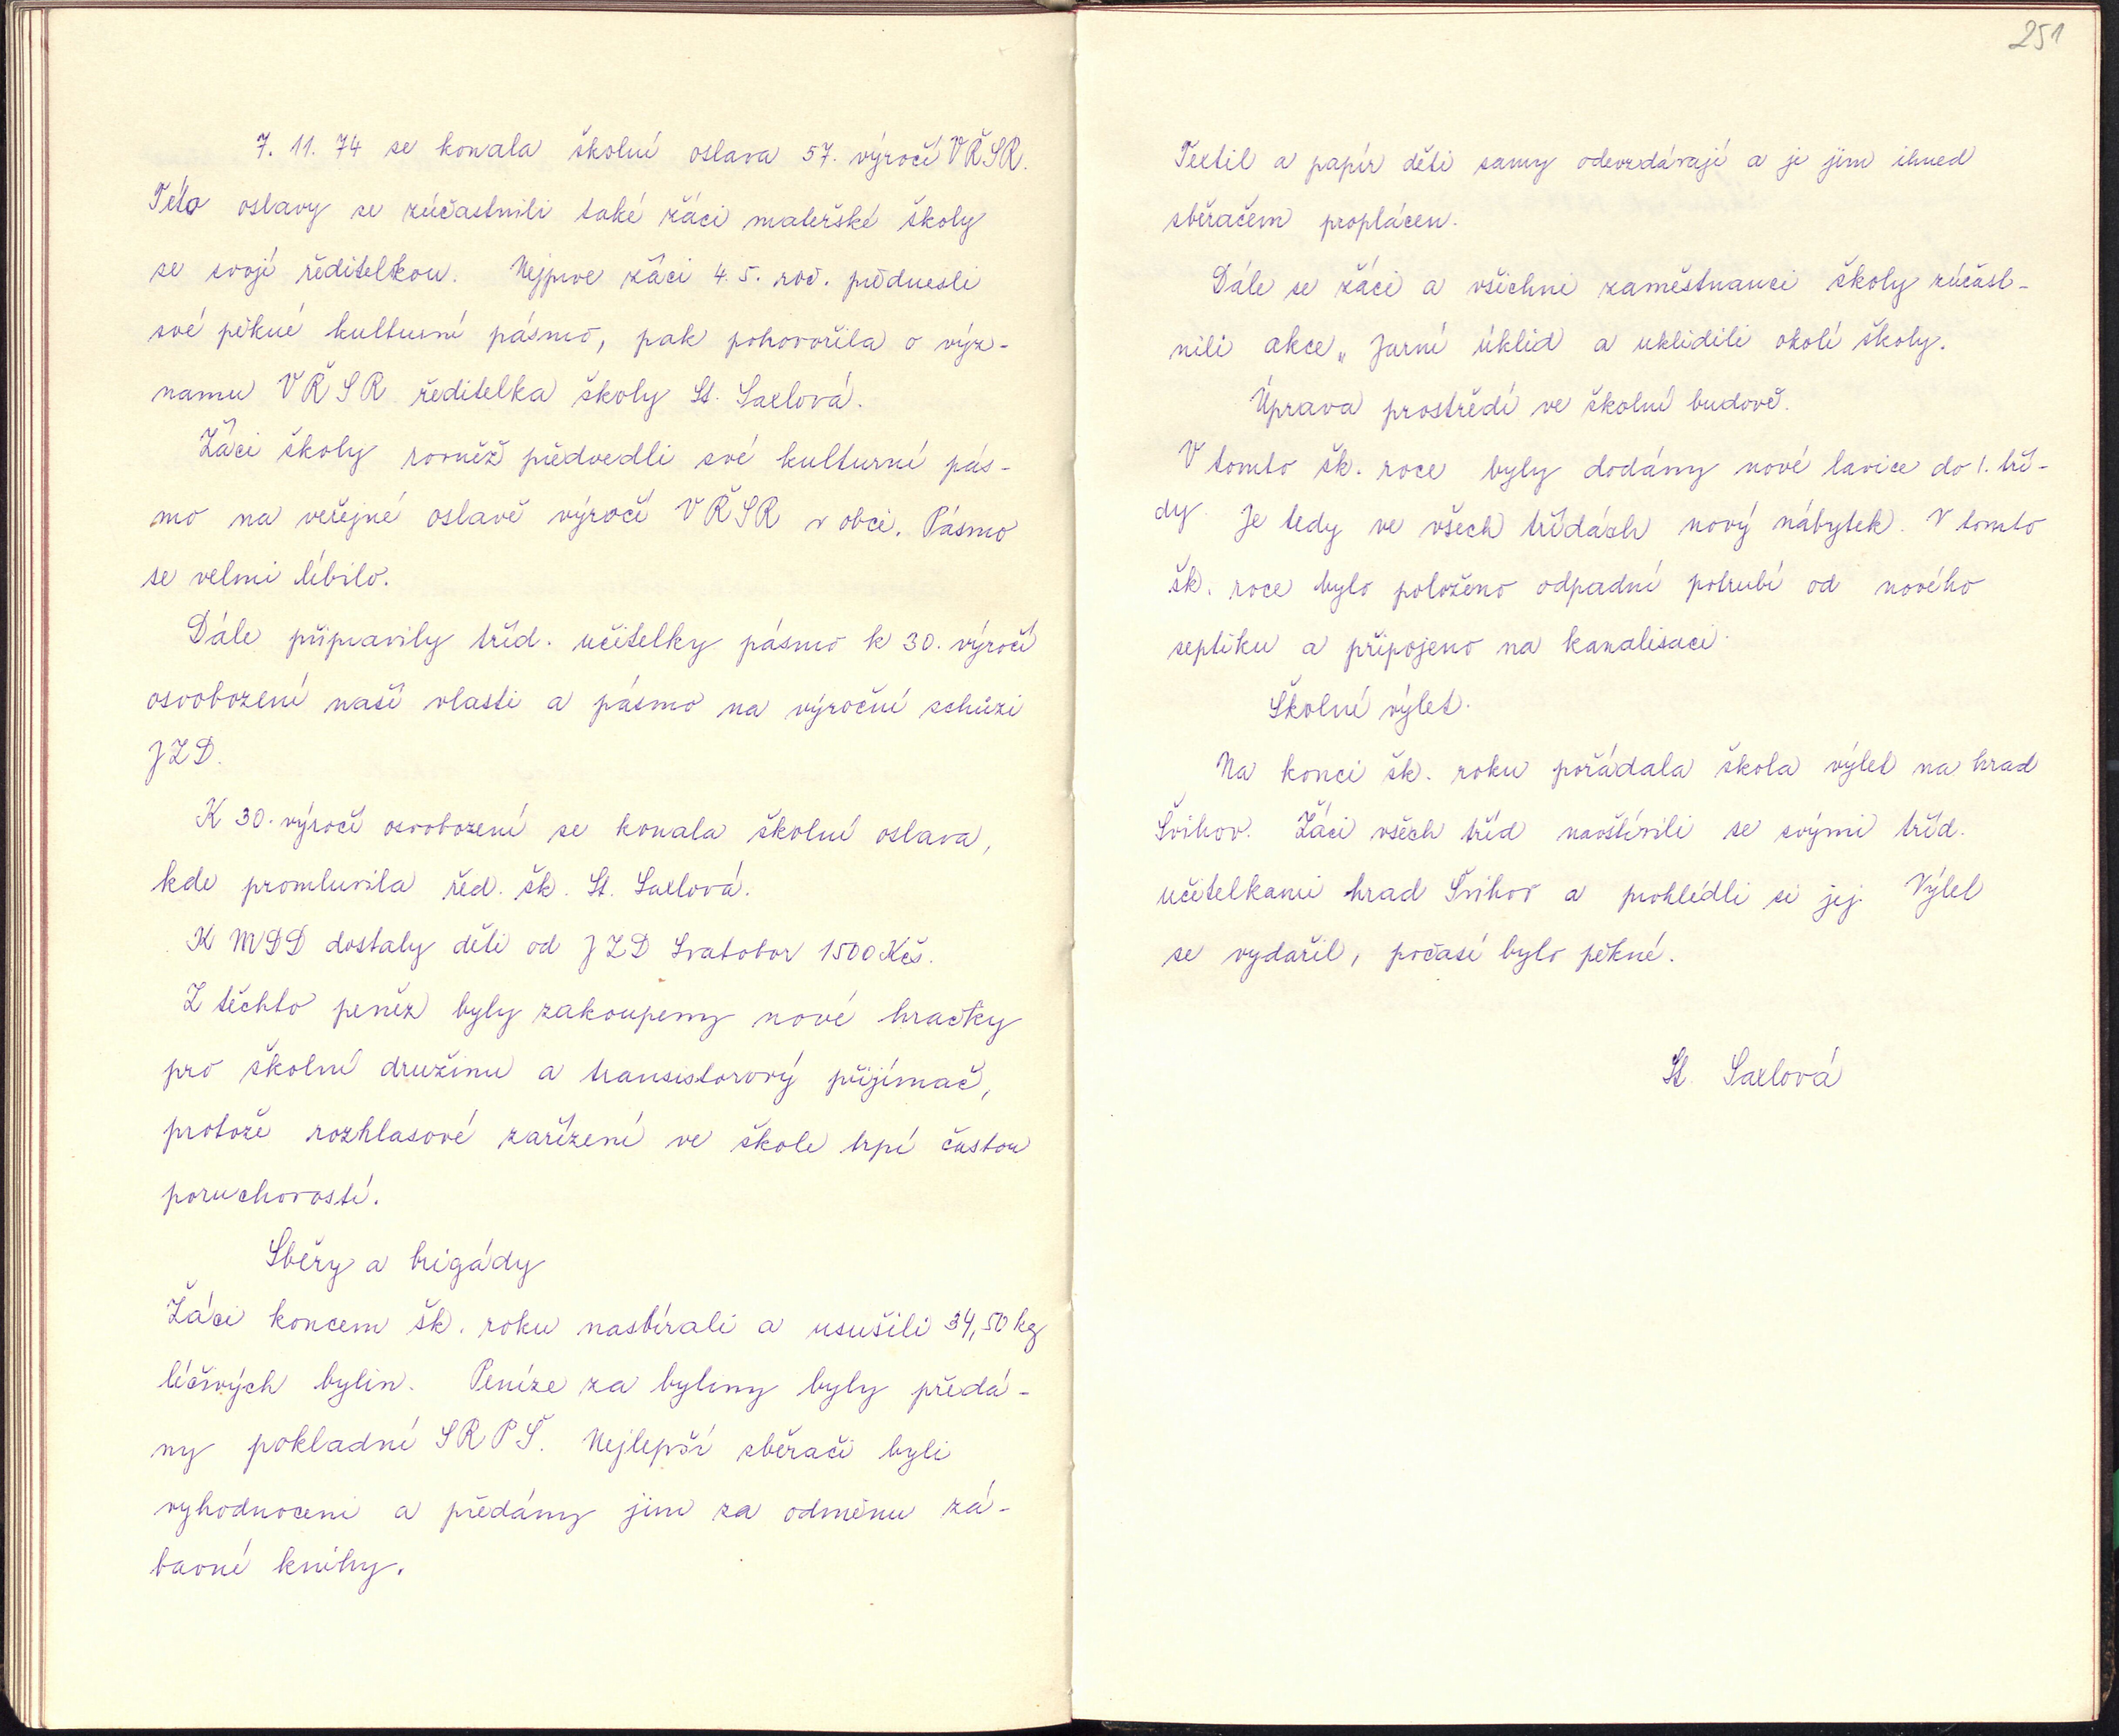 7. 11. 74 se konala školní oslava 57. výročí VŘSR.
Této oslavy se zúčastnili také žáci mateřské školy
se svojí ředitelkou. Nejprve žáci 4. 5. roč. přednesli
své pěkné kulturní pásmo, pak pohovořila o výz-
namu VŘSR ředitelka školy St. Saxlová.
Žáci školy rovněž předvedli své kulturní pás-
mo na veřejné oslavě výročí VŘSR v obci. Pásmo
se velmi líbilo.
Dále připravily tříd. učitelky pásmo k 30. výročí
osvobození naší vlasti a pásmo na výroční schůzi
JZD.
K 30. výročí osvobození se konala školní oslava,
kde promluvila řed. šk. St. Saxlová.
K MDD dostaly děti od JZD Svatobor 1500 Kčs.
Z těchto peněz byly zakoupeny nové hračky
pro školní družinu a transistorový přijímač,
protože rozhlasové zařízení ve škole trpí častou
poruchovostí.
Sběry a brigády
Žáci koncem šk. roku nasbírali a usušili 34,50 kg
léčivých bylin. Peníze za byliny byly předá-
ny pokladní SRPŠ. Nejlepší sběrači byli
vyhodnoceni a předány jim za odměnu zá-
bavné knihy.
251
Textil a papír děti samy odevzdávají a je jim ihned
sběračem proplácen.
Dále se žáci a všichni zaměstnanci školy zúčast-
nili akce „ Jarní úklid a uklidili okolí školy.
Úprava prostředí ve školní budově.
V tomto šk. roce byly dodány nové lavice do 1. tří-
dy. Je tedy ve všech třídách nový nábytek. V tomto
šk. roce bylo položeno odpadní potrubí od nového
septiku a připojeno na kanalisaci.
Školní výlet.
Na konci šk. roku pořádala škola výlet na hrad
Švihov. Žáci všech tříd navštívili se svými tříd.
učitelkami hrad Švihov a prohlédli si jej. Výlet
se vydařil, počasí bylo pěkné.
St. Saxlová